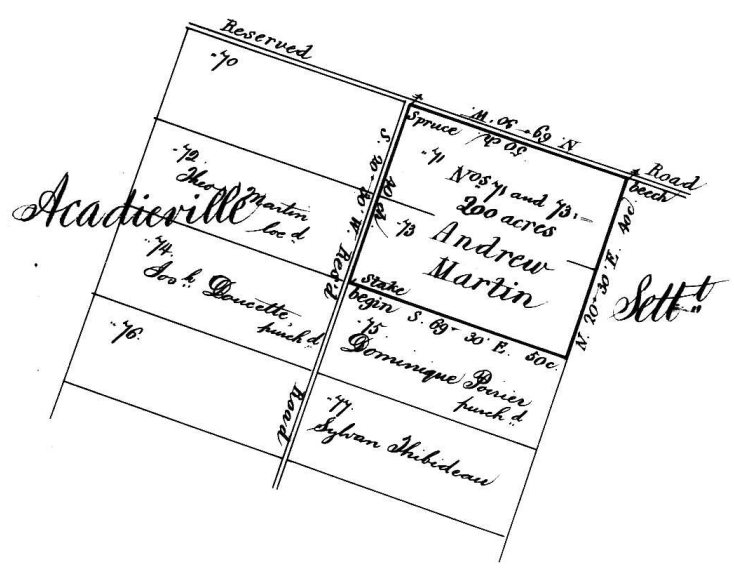 Reserved Road
70
72.
Theo Martin
loc d
Acadieville Settt
74.
Josh Doucette,
purch d
76.
S. 20° 30' W. Res'd Road
40 ch.
Spruce
N. 69° 30' W.
50 ch.
beech
71
Nos 71 and 73, =
200 acres
73
Andrew
Martin
N. 20° 30' E. 40c
Stake
begin S. 69° 30' E. 50c.
75.
Dominique Poirier
purch d
77.
Sylvan Thibideau